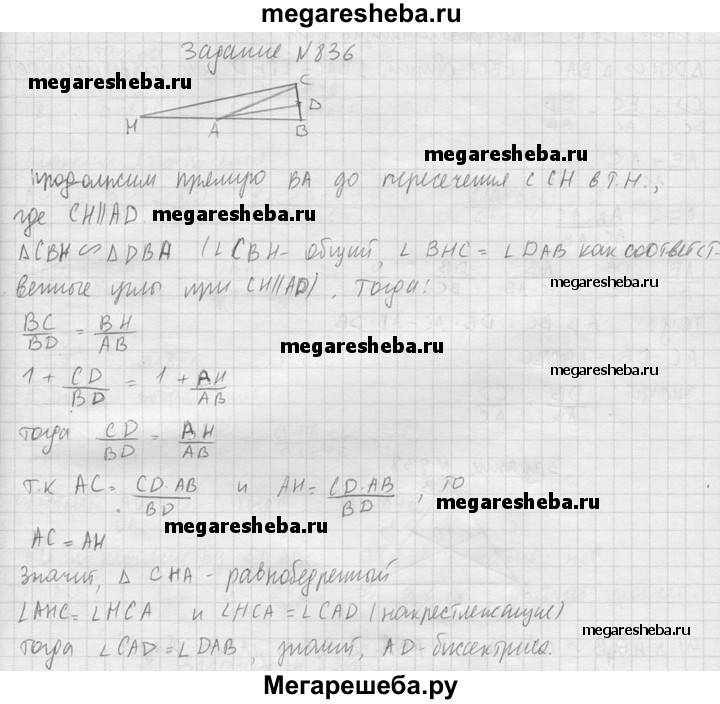 megaresheba.ru
Задание №836
megaresheba.ru
C
D
H A B
megaresheba.ru
Продолжим прямую BA до пересечения с CH в т.H.,
где CH∥AD. megaresheba.ru
△CBH ∽ △DBA (∠CBH - общий, ∠BHC = ∠DAB как соответст-
венные углы при CH∥AD). Тогда: megaresheba.ru
BC/BD = BH/AB
megaresheba.ru
1 + CD/BD = 1 + AH/AB
megaresheba.ru
тогда CD/BD = AH/AB
т.к AC = CD·AB/BD и AH = CD·AB/BD, то
megaresheba.ru
AC = AH
megaresheba.ru
Значит, △ CHA - равнобедренный
∠AHC = ∠HCA и ∠HCA = ∠CAD (накрестлежащие)
megaresheba.ru
тогда ∠CAD = ∠DAB, значит, AD - биссектриса.
megaresheba.ru
Мегарешеба.ру